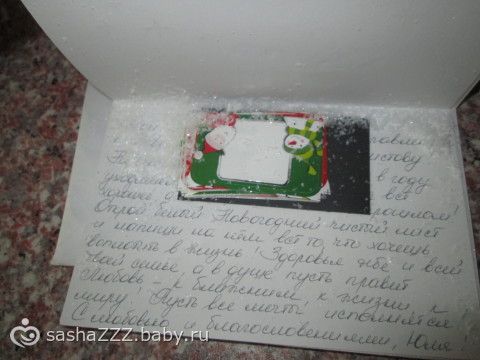 в году
всё
хорошее
прошлом!
Открой белый Новогодний чистый лист
и напиши на нём всё то, что хочешь
воплотить в жизнь! Здоровья тебе и всей
твоей семье, а в душе пусть правит
Любовь - к ближним, к жизни, к
миру! Пусть все мечты исполнятся
С любовью и благословениями, Юля!
sashaZZZ.baby.ru